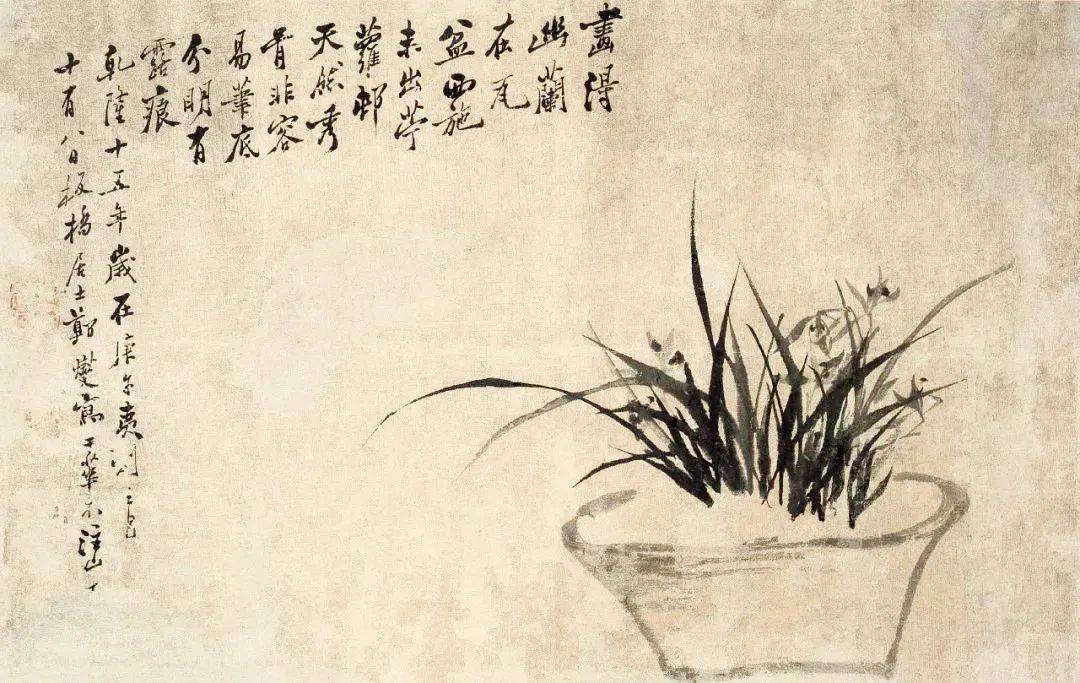 畫得
幽蘭
在瓦
盆西施
未出苧
蘿邨
天然秀
骨非容
易筆底
分明有
露痕
乾隆十五年歲在庚午夷則之
十有八日板橋居士鄭燮寫于